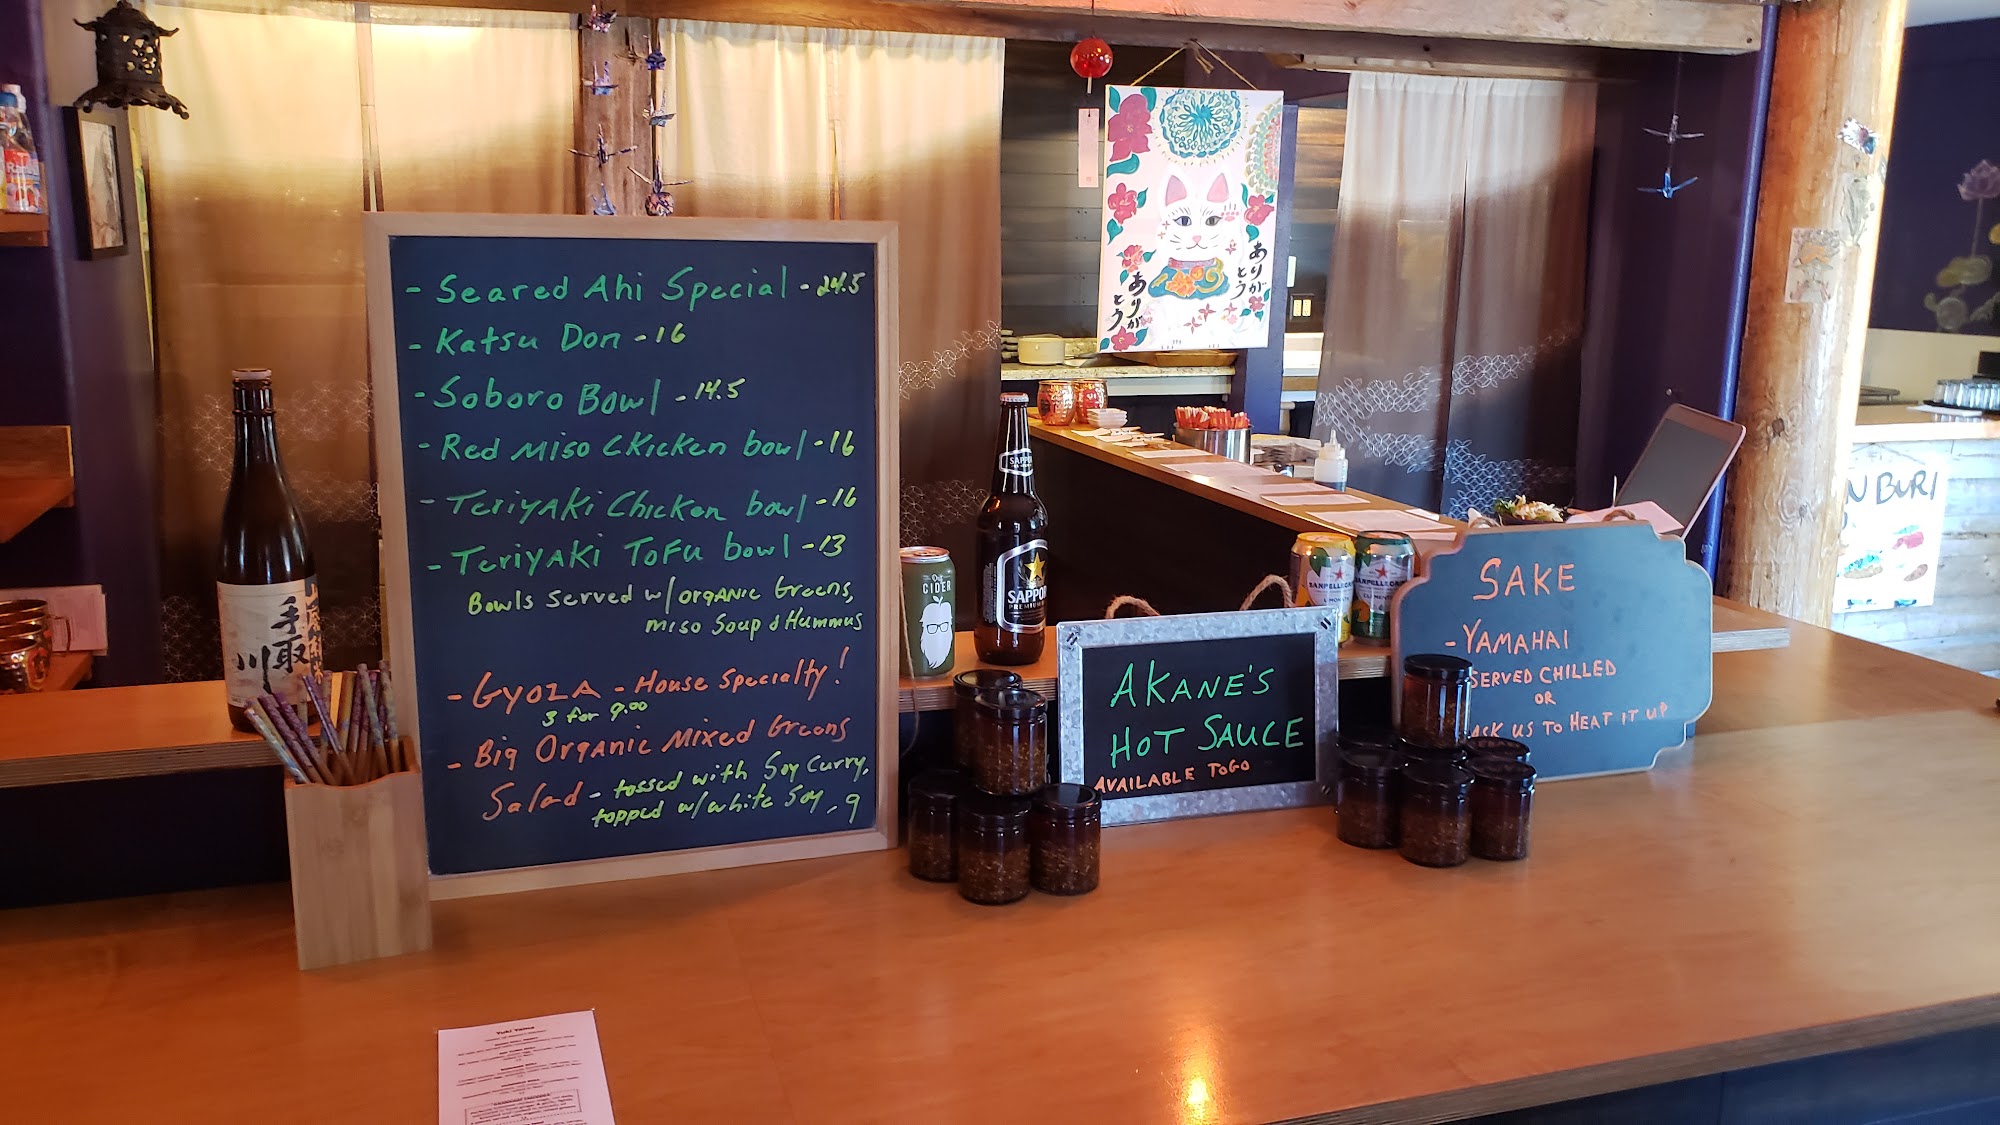 - Seared Ahi Special - 24.5
- Katsu Don - 16
- Soboro Bowl - 14.5
- Red Miso Chicken bowl - 16
- Teriyaki Chicken bowl - 16
- Teriyaki Tofu bowl - 13
Bowls served w/organic Greens,
miso Soup & Hummus
- Gyoza - House Specialty!
3 for 9.00
- Big Organic Mixed Greens
Salad - tossed with Soy Curry,
topped w/white Soy, 9
手取川
CIDER
SAPPORO
SAPPORO
PREMIUM
AKANE'S
HOT SAUCE
AVAILABLE TOGO
SANPELLEGRINO
SANPELLEGRINO
SAKE
- YAMAHAI
SERVED CHILLED
OR
ASK US TO HEAT IT UP
ありが
とう
ありが
とう
N BURI
Yuki Yama